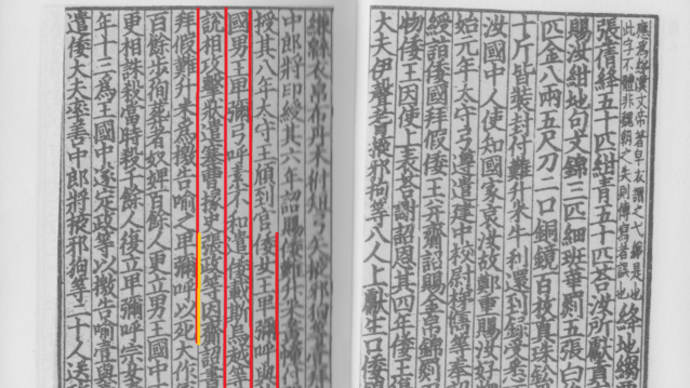 應爲綈漢文帝著皁衣謂之弋綈是也
此字不體非魏朝之失則傳寫者誤也
絳地縐
張蒨絳五十匹紺青五十匹荅汝所獻貢
賜汝紺地句文錦三匹細班華罽五張白
匹金八兩五尺刀二口銅鏡百枚真珠鈆
十斤皆裝封付難升米牛利還到錄受悉
汝國中人使知國家哀汝故鄭重賜汝好
始元年太守弓遵遣建中校尉梯儁等奉
綬詣倭國拜假倭王并齎詔賜金帛錦罽
物倭王因使上表荅謝詔恩其四年倭王
大夫伊聲耆掖邪狗等八人上獻生口倭
衣帛布丹木短弓矢掖邪狗等
中郎將印綬其六年詔賜倭難升米黃幢
授其八年太守王頎到官倭女王卑彌呼與
國男王卑彌弓呼素不和遣倭載斯烏越等
說相攻擊狀遣塞曹掾史張政等因齎詔書
拜假難升米爲檄告喻之卑彌呼以死大作
百餘步徇葬者奴婢百餘人更立男王國中
更相誅殺當時殺千餘人復立卑彌呼宗女
年十三爲王國中遂定政等以檄告喻壹與
遣倭大夫率善中郎將掖邪狗等二十人送